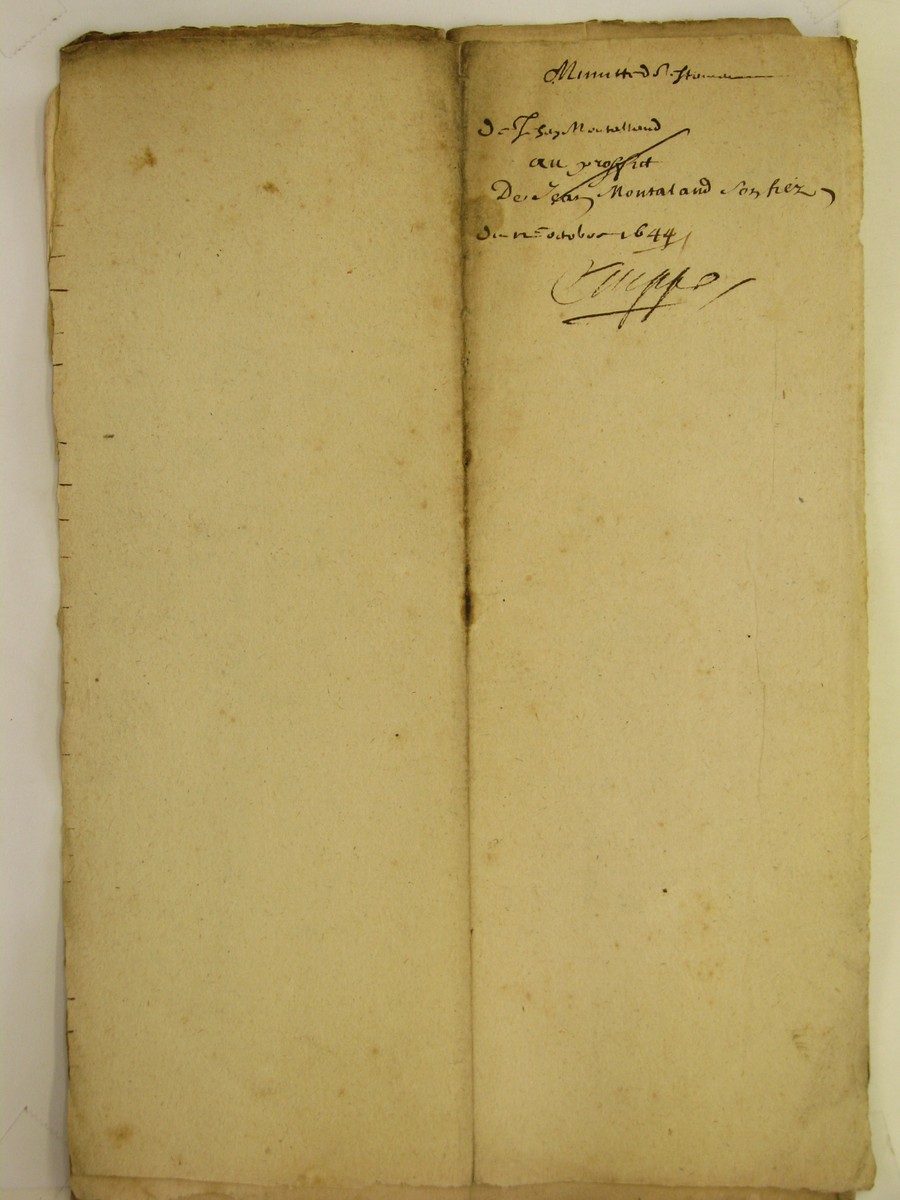 Minutte de
de Jehan Montalland
au proffict
De Jean Montaland Son
du 12e octobre 1644